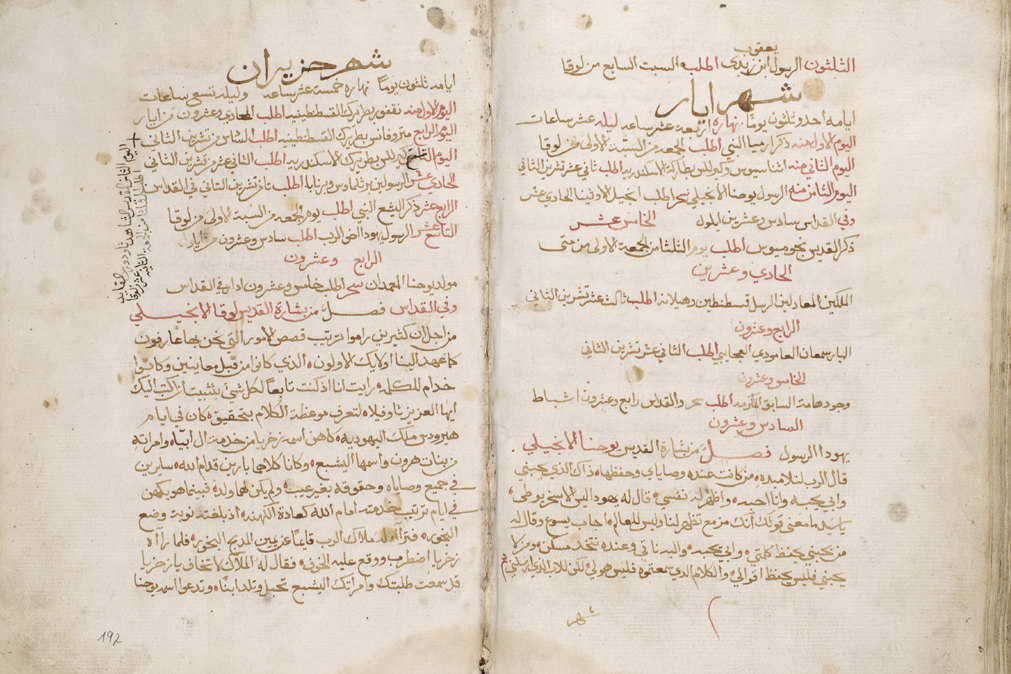 يعقوب
الثلثون الرسول ابن زبدى اطلب السبت السابع من لوقا
شهر ايار
ايامه احد وثلثون يومًا نهاره اربعة عشر ساعه ليله عشر ساعات
اليوم الاول منه ذكر ارميا النبي اطلب الجمعه من السبة الاولى من لوقا
اليوم الثاني منه اثناسيوس وكيرلس بطاركة الاسكندريه اطلب ثاني عشر تشرين الثاني
اليوم الثامن منه الرسول يوحنا الانجيلي سحر اطلب انجيل الاوثينا الحادي عشر
وفي القداس سادس وعشرين ايلول الخامس عشر
ذكر القديس بخوميوس اطلب يوم الثلثا من الجمعة الاولى من متى
الحادي وعشرين
الملكين المعادلين الرسل قسطنطين وهيلانه اطلب ثالث عشر تشرين الثاني
الرابع وعشرون
البار سمعان العامودي العجايبي اطلب الثاني عشر تشرين الثاني
الخامس وعشرون
وجود هامة السابق المكرمه اطلب سحر والقداس رابع وعشرون اشباط
السادس وعشرون
يهودا الرسول فصل من بشارة القديس يوحنا الانجيلي
قال الرب لتلاميذه من كانت عنده وصاياي وحفظها ذاك الذي يحبني
وابي يحبه وانا احبه واظهر له نفسي قال له يهودا ليس الاسخريوطي
يا سيد ما معنى قولك انك مزمع تظهر لنا وليس للعالم اجاب يسوع وقال له
من يحبني يحفظ كلمتي وابي يحبه واليه ناتي وعنده نتخذ مسكن ومن لا
يحبني فليس يحفظ اقوالي والكلام الذي سمعتموه فليس هو لي لكن للاب الذي ارسلني
شهر
شهر حزيران
ايامه ثلثون يومًا نهاره خمسة عشر ساعه وليله تسع ساعات
اليوم الاول منه نقفور بطريرك القسطنطينيه اطلب الحادي وعشرون من ايار
اليوم الرابع متروفانس بطريرك القسطنطينيه اطلب الثامن من تشرين الثاني
اليوم التاسع كيرلس بطريرك الاسكندريه اطلب الثاني عشر تشرين الثاني
الحادي عشر الرسولين برتلماوس وبرنابا اطلب تشرين الثاني في القداس
الرابع عشر ذكر اليشع النبي اطلب يوم الجمعه من السبة الاولى من لوقا
التاسع عشر الرسول يهودا اخ الرب اطلب سادس وعشرون من ايار
الرابع وعشرون
مولد يوحنا المعمدان سحر اطلب خامس وعشرون اذار في القداس
وفي القداس فصل من بشارة القديس لوقا الانجيلي
من اجل ان كثيرين راموا ترتيب قصص الامور التي نحن بها عارفون
كما عهد الينا اولايك الاولون الذي كانوا من قبل معاينين وكانوا
خدام للكلمه رايت انا اذ كنت تابعًا لكل شي بتثبيت ان اكتب اليك
ايها العزيز ثاوفيلا لتعرف موعظة الكلام بتحقيق كان في ايام
هيرودس ملك اليهوديه كاهن اسمه زخريا من خدمة ال ابيّا وامراته
من بنات هرون واسمها اليشبع وكانا كلاهما بارين قدام الله سايرين
في جميع وصاياه وحقوقه بغير عيب ولم يكن لهما ولد فبينما هو يكهن
في ايام ترتيب خدمته امام الله كعادة الكهنه اذ بلغته نوبة وضع
البخور فترآاى له ملاك الرب قايمًا عن يمين المذبح البخور فلما راآه
زخريا اضطرب ووقع عليه الخوف فقال له الملاك لا تخاف يا زخريا
قد سمعت طلبتك وامراتك اليشبع تحبل وتلد ابنًا وتدعوا اسمه يوحنا
192